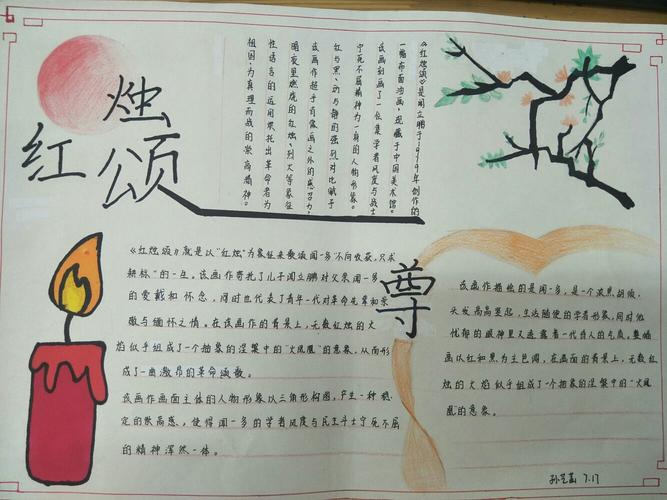 红烛颂
《红烛颂》是闻立鹏于1979年创作的
一幅布面油画，现藏于中国美术馆。
该画刻画了一位集学者风度与战士
宁死不屈精神为一身的人物形象。
红与黑、动与静的强烈对比赋予
该画作超乎肖像画之外的感召力，
暗夜里燃烧的红烛、烈火等象征
性语言的运用烘托出革命者为
祖国，为真理而战的崇高精神。
《红烛颂》就是以"红烛"为象征来歌颂闻一多"不问收获，只求
耕耘"的一生。该画作寄托了儿子闻立鹏对父亲闻一多
的爱戴和怀念，同时也代表了青年一代对革命先辈和崇
敬与缅怀之情。在该画作的背景上，无数红烛的火
焰似乎组成了一个抽象的涅槃中的"火凤凰"的意象，从而形
成了一曲激昂的革命颂歌。
该画作画面主体的人物形象以三角形构图，产生一种稳
定的崇高感，使得闻一多的学者风度与民主斗士宁死不屈
的精神浑然一体。
尊
该画作描绘的是闻一多，是一个浓黑胡须，
头发高高竖起，生活随便的学者形象，同时他
忧郁的眼神里又透露着一代诗人的气质。整幅
画以红和黑为主色调，在画面的背景上，无数红
烛的火焰似乎组成了一个抽象的涅槃中的"火凤
凰的意象。
7.17